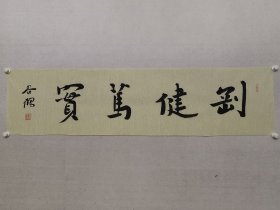 剛健篤實